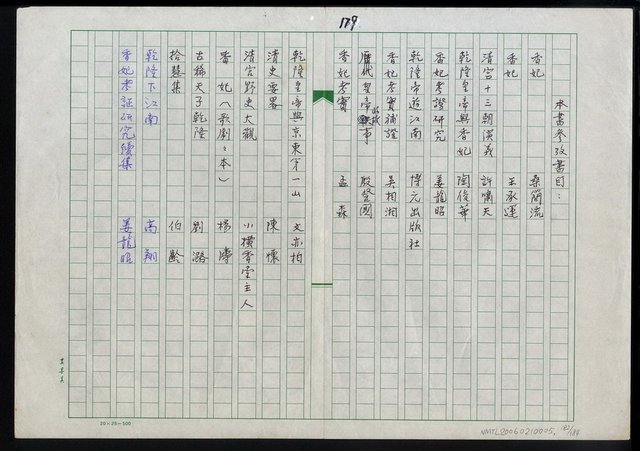 179
本書參攷書目：
香妃 桑簡流
香妃 王承運
清宮十三朝演義 許嘯天
乾隆皇帝與香妃 陶俊華
香妃考證研究 姜龍昭
乾隆帝遊江南 博元出版社
香妃考實補證 吳相湘
歷代皇帝軼事 殷登國
香妃考實 孟森
乾隆皇帝與京東第一山 文亦柏
清史要畧 陳懷
清宮野史大觀 小橫香室主人
香妃（歌劇々本） 楊濤
古稀天子乾隆 劉潞
拾慧集 伯齡
乾隆下江南 高翔
香妃考証研究續集 姜龍昭
20×25=500
NMTL20060210005,